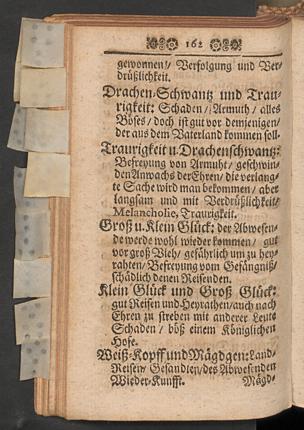 162
gewonnen/ Verfolgung und Ver-
drüßlichkeit.
Drachen-Schwantz und Trau-
rigkeit: Schaden/ Armuth/ alles
Böses/ doch ist gut vor demjenigen/
der aus dem Vaterland kommen soll.
Traurigkeit u. Drachenschwantz:
Befreyung von Armuht/ geschwin-
den Anwachs der Ehren/ die verlang-
te Sache wird man bekommen/ aber
langsam und mit Verdrüßlichkeit/
Melancholie, Traurigkeit.
Groß u. Klein Glück: der Abwesen-
de werde wohl wieder kommen/ gut
vor groß Vieh/ gefährlich um zu hey-
rahten/ Befreyung vom Gefängniß/
schädlich denen Reisenden.
Klein Glück und Groß Glück:
gut Reisen und Heyrathen/ auch nach
Ehren zu streben mit anderer Leute
Schaden/ böß einem Königlichen
Hofe.
Weiß-Kopff und Mägdgen: Land-
Reisen/ Gesandten/ des Abwesenden
Wieder-Kunfft. Mägd-